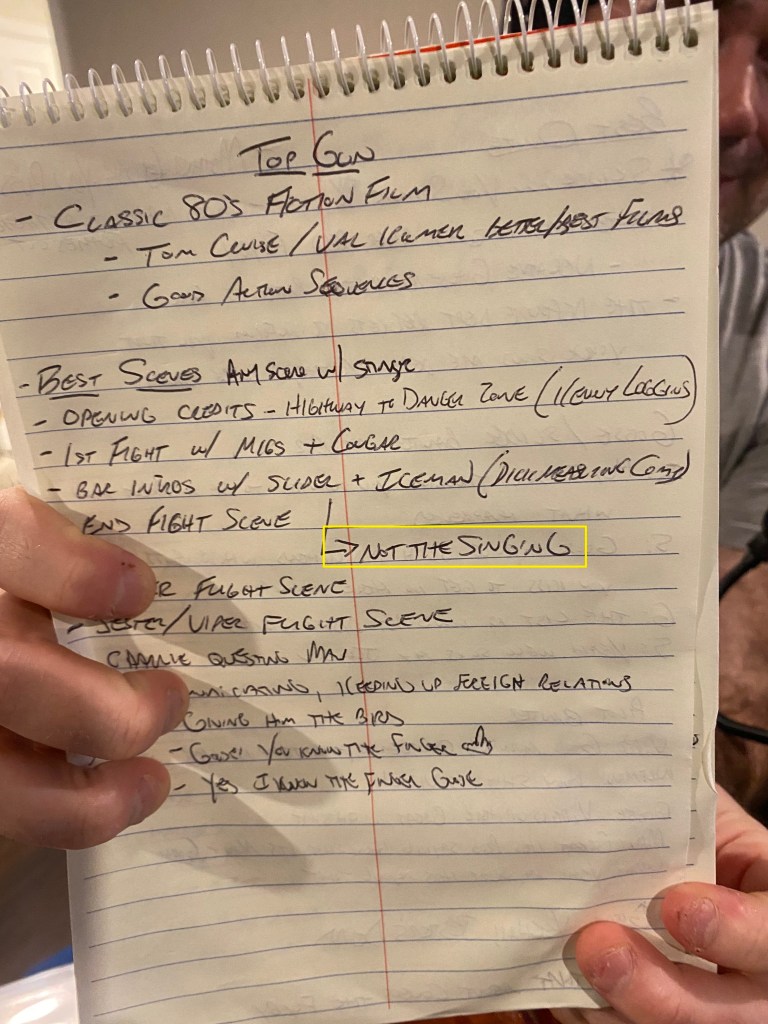 TOP GUN
- CLASSIC 80'S ACTION FILM
- TOM CRUISE / VAL KILMER BETTER/BEST FILMS
- GOOD ACTION SEQUENCES
- BEST SCENES AM SCENE W/ STINGER
- OPENING CREDITS - HIGHWAY TO DANGER ZONE (KENNY LOGGINS)
- 1ST FIGHT W/ MIGS + COUGAR
- BAR INTROS W/ SLIDER + ICEMAN (DICK MEASURING COMP)
END FIGHT SCENE
→ NOT THE SINGING
FLIGHT SCENE
- JESTER/VIPER FLIGHT SCENE
CHARLIE QUESTIONING MAV
, KEEPING UP FOREIGN RELATIONS
GIVING HIM THE BIRD
- GOOSE! YOU KNOW THE FINGER
- YES I KNOW THE FINGER GOOSE